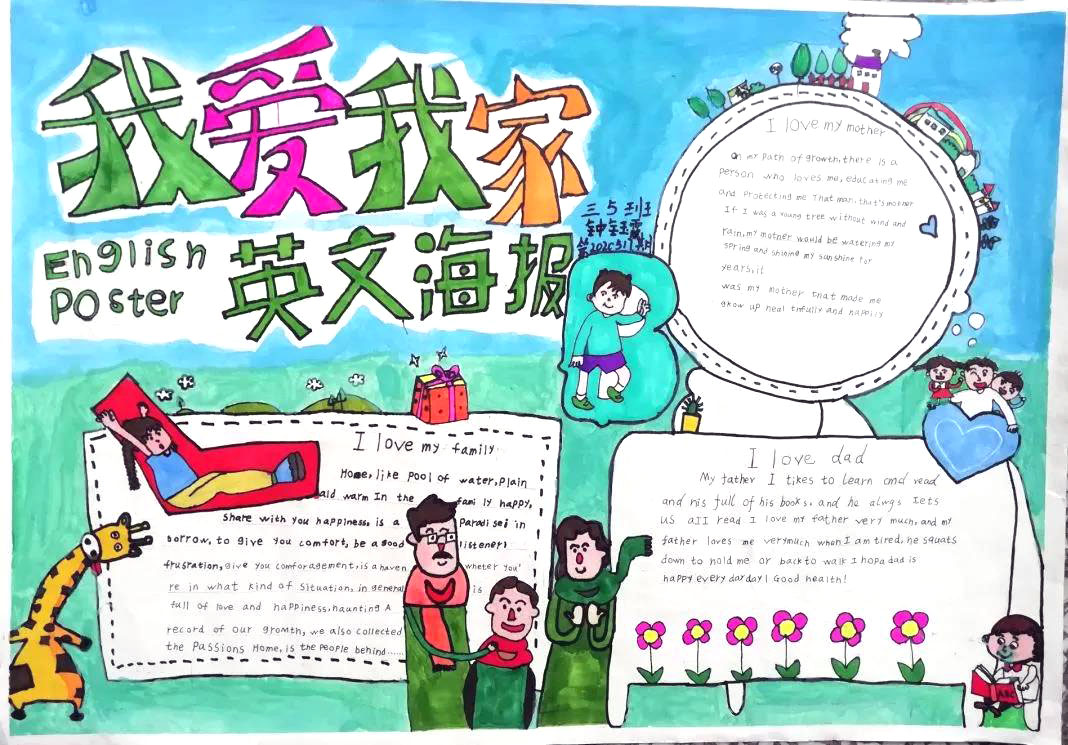 我爱我家
English
Poster
英文海报
三5班
I love my mother
On my Path of growth, there is a
person who loves me, educating me
and Protecting me That man, that's mother
If I was a young tree without wind and
rain, my mother would be watering my
spring and shining my sunshine for
years, it
was my mother that made me
grow up heal thfully and happily
I love my family
Home, like Pool of water, Plain
aid warm In the fami ly happy,
Share with you happiness. is a Paradise! in
sorrow, to give you comfort, be a good listener!
frusration, give you comforagement, is a haven wheter you'
re in what kind of Situation, in general is
full of love and happiness, haunting A
record of our growth, we also collected
the Passions Home, is the People behind......
I love dad
My father I tikes to learn and read
and his full of his books. and he alwgs Iets
us all read I love my father very much, and my
father loves me verymuch when I am tired, he squats
down to hold me or back to walk I hopa dad is
happy every dayday! Good health!
ABC